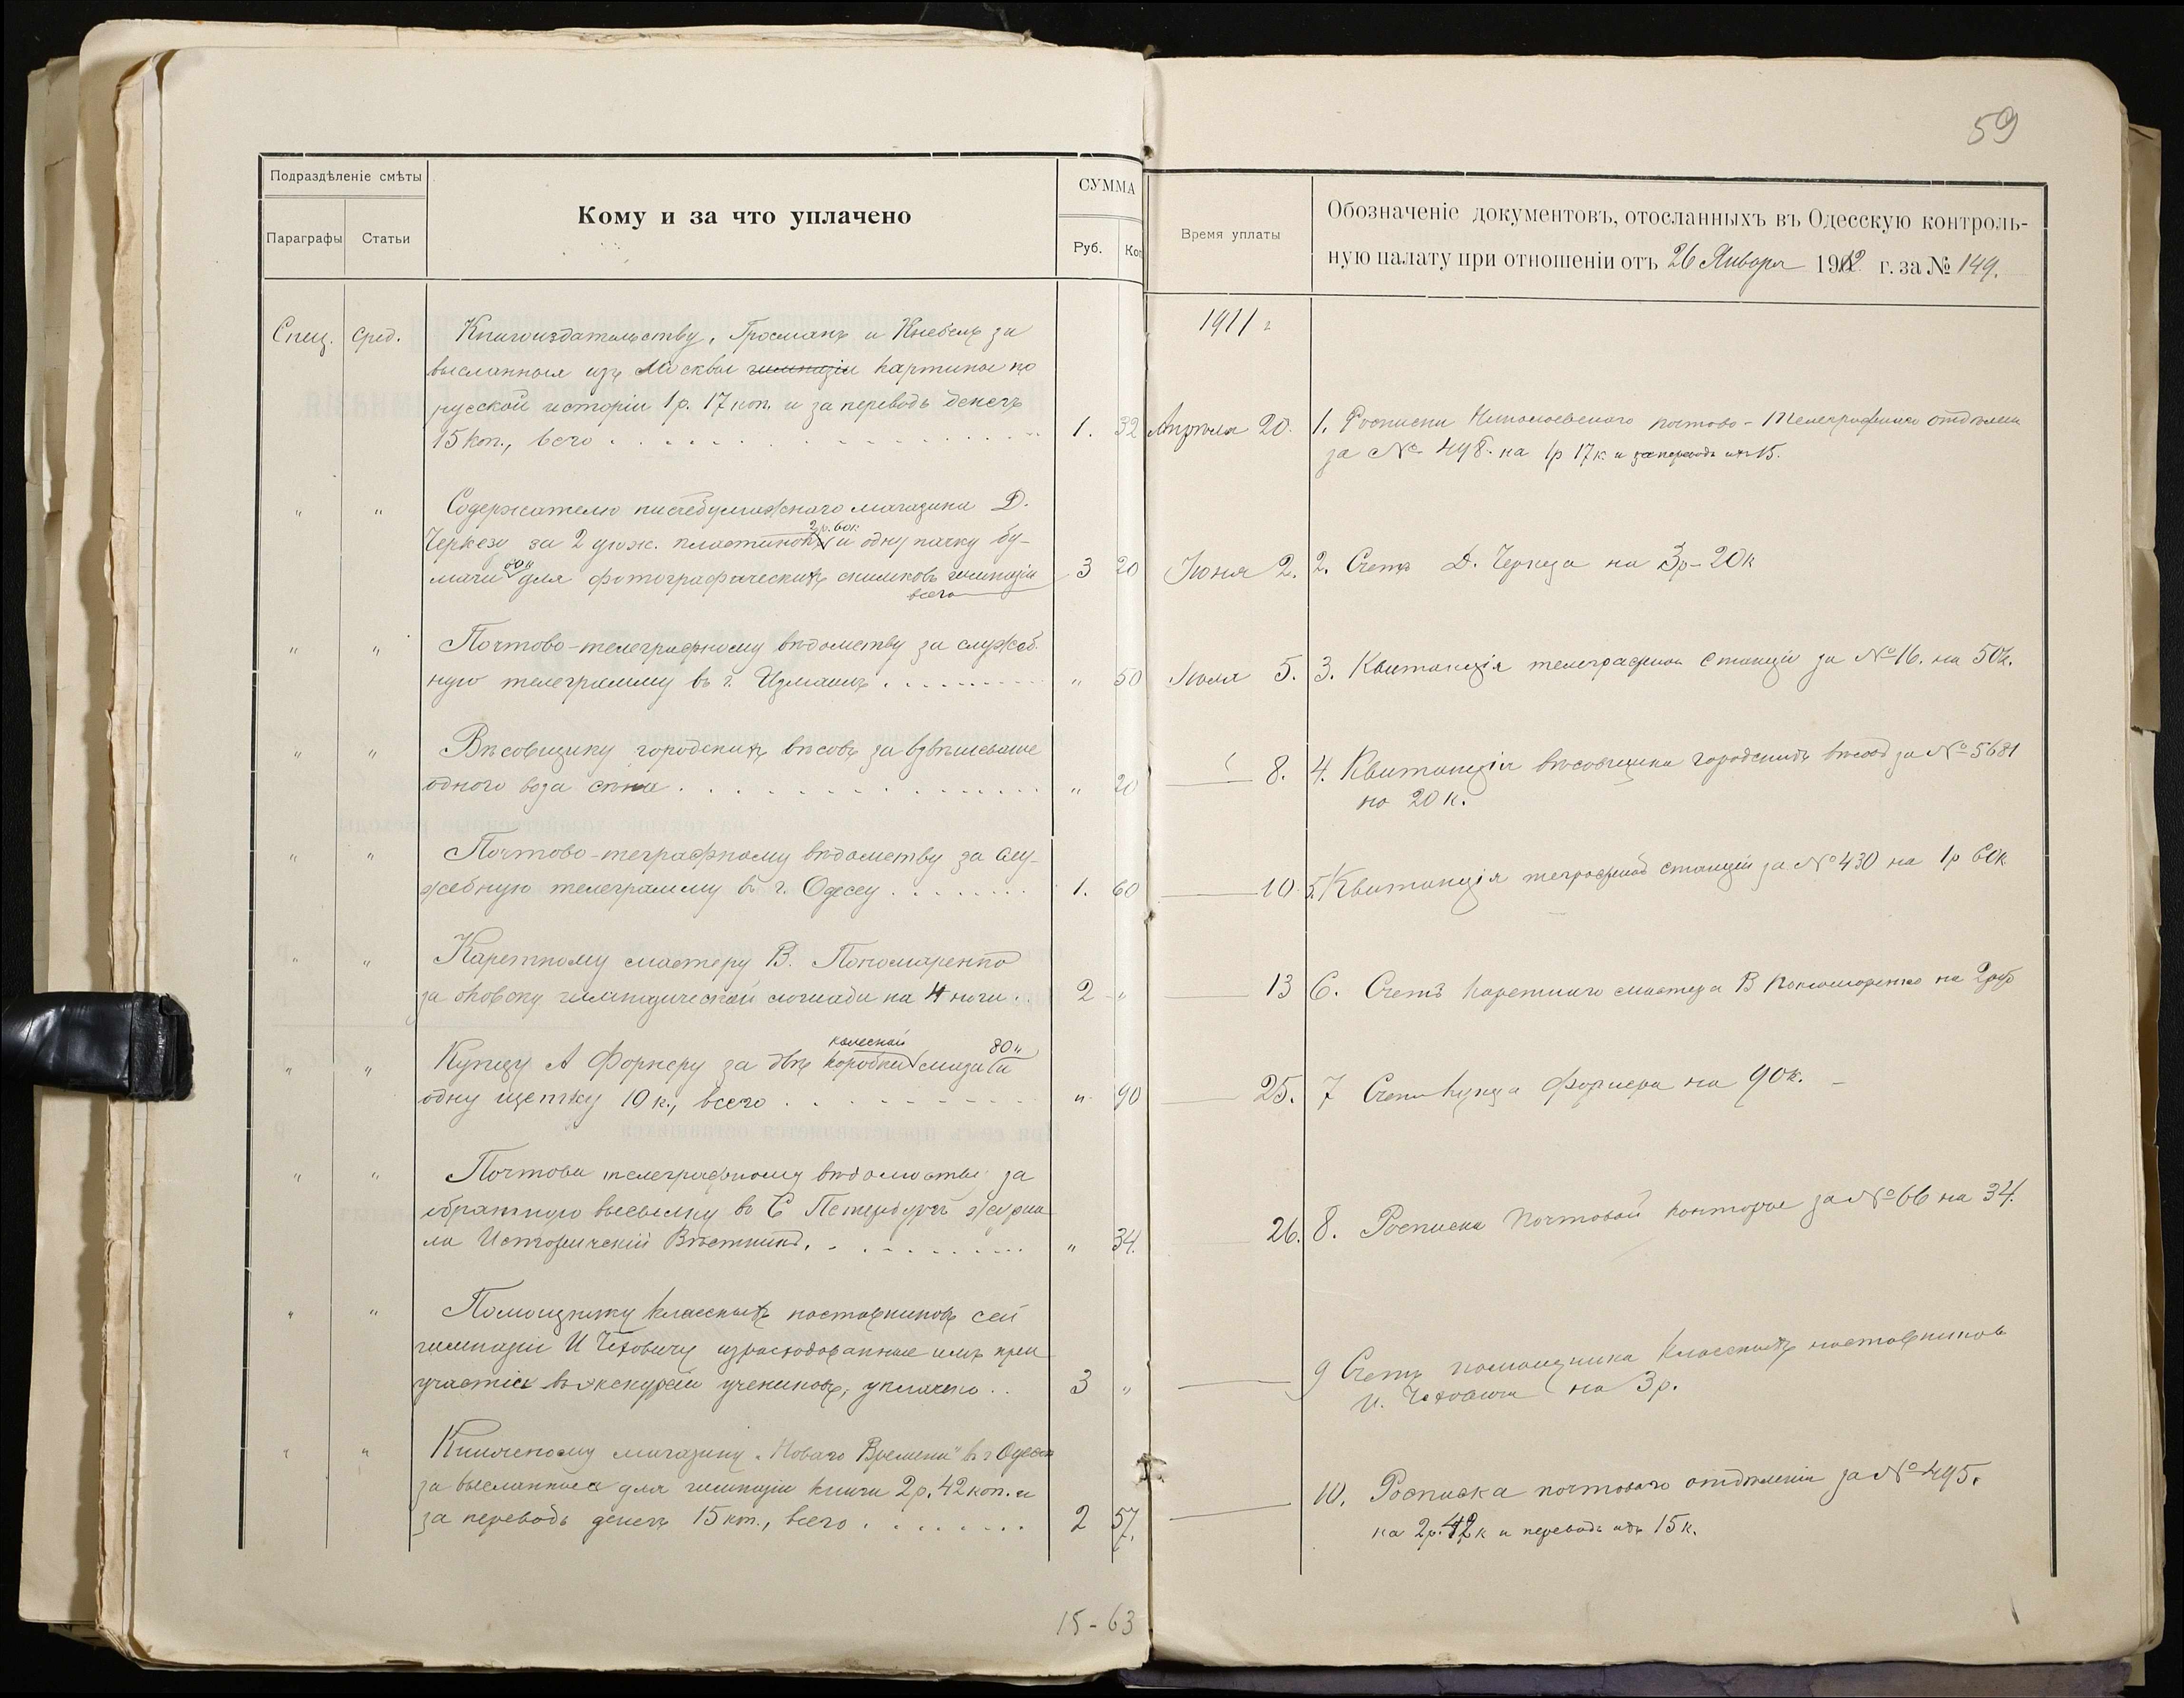 59
Подраздѣленіе смѣты
Параграфы
Статьи
Кому и за что уплачено
СУММА
Руб.
Коп
Спец.
Сред.
Книгоиздательству, Гросманъ и Кнебель за
высланныя изъ Москвы гимназіи картины по
русской исторіи 1 р. 17 коп. и за переводъ денегъ
15 коп., всего
1. 32
" "
Содержателю писчебумажнаго магазина Д.
2 р. 60 к
Черкезу за 2 дюж. пластинокъ и одну пачку бу-
60 к
маги для фотографическихъ снимковъ гимназіи
всего
3 20
" "
Почтово-телеграфному вѣдомству за служеб
ную телеграмму въ г. Измаилъ
" 50
" "
Вѣсовщику городскихъ вѣсовъ за взвѣшеванье
одного воза сѣна
" 20
" "
Почтово-теграфному вѣдомству за слу-
жебную телеграмму въ г. Одессу
1. 60
" "
Каретному мастеру В. Пономаренко
за оковку гимназической лошади на 4 ноги
2 "
" "
колесной 80 "
Купцу А Форнеру за двѣ коробки мази и
одну щетку 10 к., всего
" 90
" "
Почтово телеграфному вѣдомству за
обратную высылку въ С Петербургъ журна
ла Историческій Вѣстникъ.
" 34.
" "
Помощнику классныхъ наставниковъ сей
гимназіи И Чеховичу израсходованные имъ при
участіи въ экскурсіи учениковъ, уплачено
3 "
" "
Книжному магазину „Новаго Времени" въ г Одессѣ
за высланныя для гимназіи книги 2 р. 42 коп. и
за переводъ денегъ 15 коп., всего
2 57.
15-63
Время уплаты
Обозначеніе документовъ, отосланныхъ въ Одесскую контроль-
ную палату при отношеніи отъ 26 Января 1912 г. за № 149.
1911 г
Апрѣля 20.
1. Росписка Николаевскаго почтово-телеграфнаго отдѣлен
за № 498. на 1 р 17 к. и за переводъ ихъ 15.
Іюня 2.
2. Счетъ Д. Черкеза на 3 р-20 к
Іюля 5.
3. Квитанція телеграфной станціи за № 16. на 50 к.
8.
4. Квитанція вѣсовщика городскихъ вѣсовъ за № 5681
на 20 к.
10
5. Квитанція теграфной станціи за № 430 на 1 р 60 к
13
6. Счетъ каретнаго мастера В Пономаренко на 2 руб
25.
7 Счетъ купца Форнера на 90 к.
26.
8. Росписка почтовой конторы за № 66 на 34.
9 Счетъ помощника классныхъ наставниковъ
И. Чеховича на 3 р.
10. Росписка почтоваго отдѣленія за № 495.
на 2 р. 42 к и переводъ ихъ 15 к.